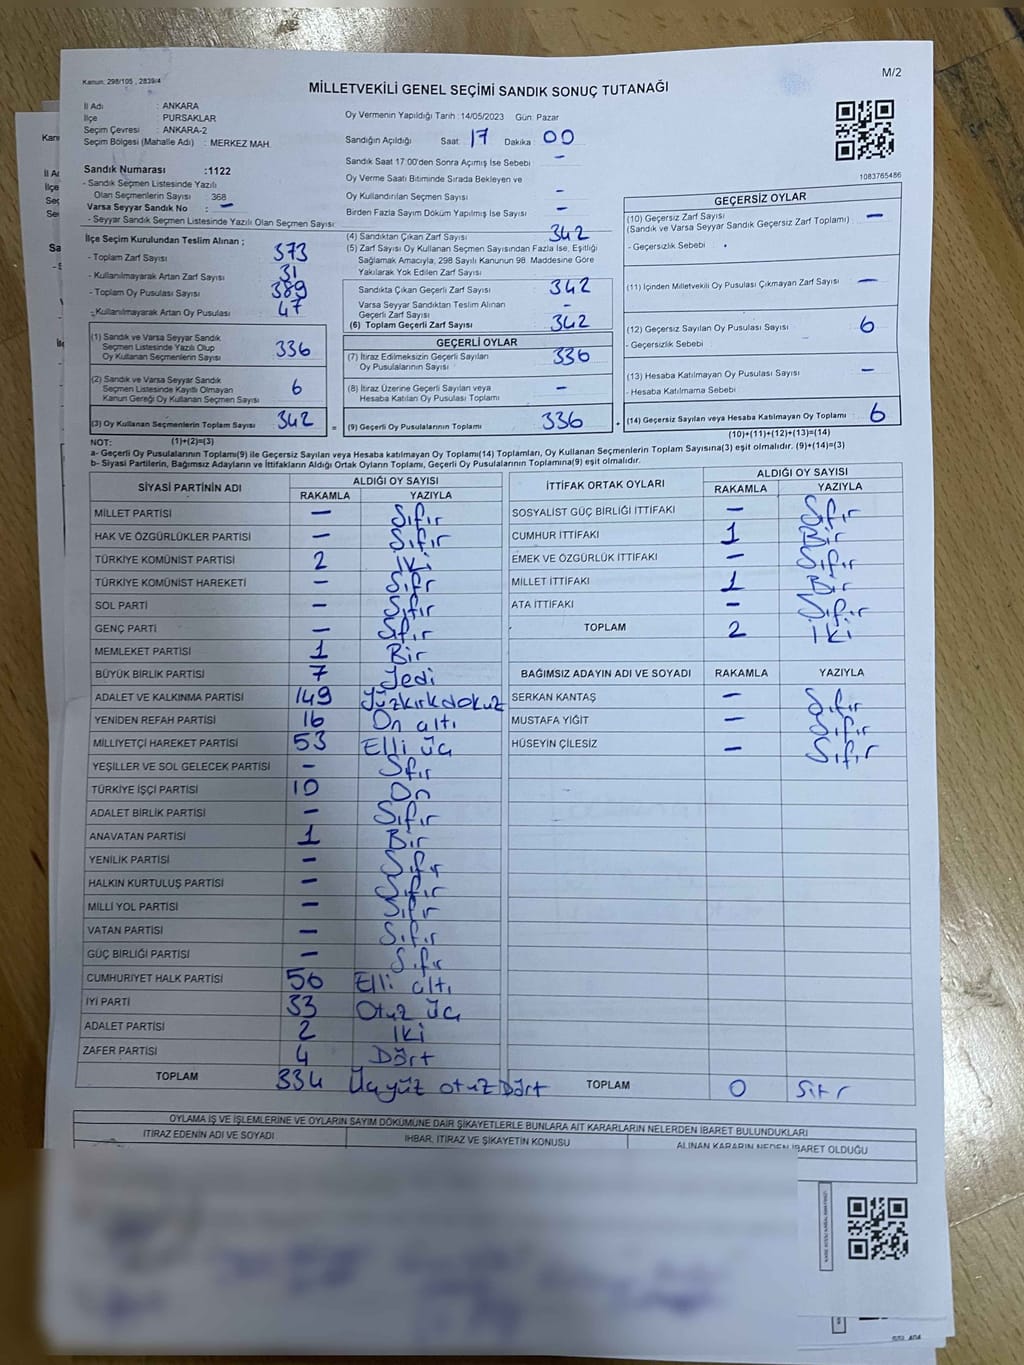 Kanun, 298/105 , 2839/4
M/2
MİLLETVEKİLİ GENEL SEÇİMİ SANDIK SONUÇ TUTANAĞI
İl Adı : ANKARA
İlçe : PURSAKLAR
Seçim Çevresi : ANKARA-2
Seçim Bölgesi (Mahalle Adı) : MERKEZ MAH.
Oy Vermenin Yapıldığı Tarih :14/05/2023 Gün: Pazar
Sandığın Açıldığı Saat 17 Dakika 00
Sandık Saat 17:00'den Sonra Açımış İse Sebebi –
Oy Verme Saati Bitiminde Sırada Bekleyen ve
Oy Kullandırılan Seçmen Sayısı –
Birden Fazla Sayım Döküm Yapılmış İse Sayısı –
1083765486
Sandık Numarası :1122
- Sandık Seçmen Listesinde Yazılı
Olan Seçmenlerin Sayısı : 368
Varsa Seyyar Sandık No : –
- Seyyar Sandık Seçmen Listesinde Yazılı Olan Seçmen Sayısı
İlçe Seçim Kurulundan Teslim Alınan ;
- Toplam Zarf Sayısı 373
- Kullanılmayarak Artan Zarf Sayısı 31
- Toplam Oy Pusulası Sayısı 389
- Kullanılmayarak Artan Oy Pusulası 47
(1) Sandık ve Varsa Seyyar Sandık
Seçmen Listesinde Yazılı Olup
Oy Kullanan Seçmenlerin Sayısı 336
(2) Sandık ve Varsa Seyyar Sandık
Seçmen Listesinde Kayıtlı Olmayan
Kanun Gereği Oy Kullanan Seçmen Sayısı 6
(3) Oy Kullanan Seçmenlerin Toplam Sayısı 342
(4) Sandıktan Çıkan Zarf Sayısı 342
(5) Zarf Sayısı Oy Kullanan Seçmen Sayısından Fazla İse, Eşitliği
Sağlamak Amacıyla, 298 Sayılı Kanunun 98. Maddesine Göre
Yakılarak Yok Edilen Zarf Sayısı
Sandıkta Çıkan Geçerli Zarf Sayısı 342
Varsa Seyyar Sandıktan Teslim Alınan
Geçerli Zarf Sayısı –
(6) Toplam Geçerli Zarf Sayısı 342
GEÇERLİ OYLAR
(7) İtiraz Edilmeksizin Geçerli Sayılan
Oy Pusulalarının Sayısı 336
(8) İtiraz Üzerine Geçerli Sayılan veya
Hesaba Katılan Oy Pusulası Toplamı –
= (9) Geçerli Oy Pusulalarının Toplamı 336
GEÇERSİZ OYLAR
(10) Geçersiz Zarf Sayısı –
(Sandık ve Varsa Seyyar Sandık Geçersiz Zarf Toplamı)
- Geçersizlik Sebebi
(11) İçinden Milletvekili Oy Pusulası Çıkmayan Zarf Sayısı –
(12) Geçersiz Sayılan Oy Pusulası Sayısı 6
- Geçersizlik Sebebi
(13) Hesaba Katılmayan Oy Pusulası Sayısı –
- Hesaba Katılmama Sebebi
+ (14) Geçersiz Sayılan veya Hesaba Katılmayan Oy Toplamı 6
(10)+(11)+(12)+(13)=(14)
NOT: (1)+(2)=(3)
a- Geçerli Oy Pusulalarının Toplamı(9) ile Geçersiz Sayılan veya Hesaba katılmayan Oy Toplamı(14) Toplamları, Oy Kullanan Seçmenlerin Toplam Sayısına(3) eşit olmalıdır. (9)+(14)=(3)
b- Siyasi Partilerin, Bağımsız Adayların ve İttifakların Aldığı Ortak Oyların Toplamı, Geçerli Oy Pusulalarının Toplamına(9) eşit olmalıdır.
SİYASİ PARTİNİN ADI ALDIĞI OY SAYISI
RAKAMLA YAZIYLA
MİLLET PARTİSİ – Sıfır
HAK VE ÖZGÜRLÜKLER PARTİSİ – Sıfır
TÜRKİYE KOMÜNİST PARTİSİ 2 iki
TÜRKİYE KOMÜNİST HAREKETİ – Sıfır
SOL PARTİ – Sıfır
GENÇ PARTİ – Sıfır
MEMLEKET PARTİSİ 1 Bir
BÜYÜK BİRLİK PARTİSİ 7 Yedi
ADALET VE KALKINMA PARTİSİ 149 Yüzkırkdokuz
YENİDEN REFAH PARTİSİ 16 On altı
MİLLİYETÇİ HAREKET PARTİSİ 53 Elli üç
YEŞİLLER VE SOL GELECEK PARTİSİ – Sıfır
TÜRKİYE İŞÇİ PARTİSİ 10 On
ADALET BİRLİK PARTİSİ – Sıfır
ANAVATAN PARTİSİ 1 Bir
YENİLİK PARTİSİ – Sıfır
HALKIN KURTULUŞ PARTİSİ – Sıfır
MİLLİ YOL PARTİSİ – Sıfır
VATAN PARTİSİ – Sıfır
GÜÇ BİRLİĞİ PARTİSİ – Sıfır
CUMHURİYET HALK PARTİSİ 56 Elli altı
İYİ PARTİ 33 Otuz üç
ADALET PARTİSİ 2 İki
ZAFER PARTİSİ 4 Dört
TOPLAM 334 Üçyüz otuz Dört
İTTİFAK ORTAK OYLARI ALDIĞI OY SAYISI
RAKAMLA YAZIYLA
SOSYALİST GÜÇ BİRLİĞİ İTTİFAKI – Sıfır
CUMHUR İTTİFAKI 1 Bir
EMEK VE ÖZGÜRLÜK İTTİFAKI – Sıfır
MİLLET İTTİFAKI 1 Bir
ATA İTTİFAKI – Sıfır
TOPLAM 2 İki
BAĞIMSIZ ADAYIN ADI VE SOYADI RAKAMLA YAZIYLA
SERKAN KANTAŞ – Sıfır
MUSTAFA YİĞİT – Sıfır
HÜSEYİN ÇİLESİZ – Sıfır
TOPLAM 0 Sıfır
OYLAMA İŞ VE İŞLEMLERİNE VE OYLARIN SAYIM DÖKÜMÜNE DAİR ŞİKAYETLERLE BUNLARA AİT KARARLARIN NELERDEN İBARET BULUNDUKLARI
İTİRAZ EDENİN ADI VE SOYADI İHBAR, İTİRAZ VE ŞİKAYETİN KONUSU ALINAN KARARIN NEDEN İBARET OLDUĞU